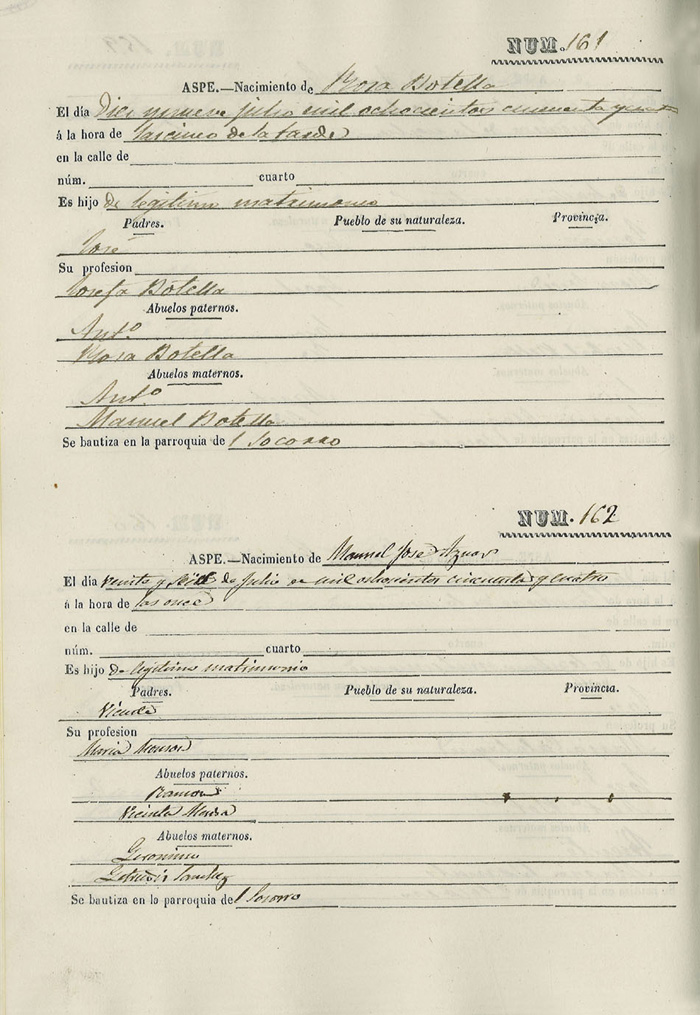 NUM. 161
ASPE.—Nacimiento de Rosa Botella
El día Diez nueve julio mil ochocientos cincuenta y
á la hora de las cinco de la tarde
en la calle de
núm. cuarto
Es hijo de legitimo matrimonio
Padres. Pueblo de su naturaleza. Provincia.
José
Su profesion
Josefa Botella
Abuelos paternos.
Antº
Rosa Botella
Abuelos maternos.
Antº
Manuel Botella
Se bautiza en la parroquia de l Socorro
NUM. 162
ASPE.—Nacimiento de Manuel José Aznar
El día veinte y de Julio de mil ochocientos cincuenta y cuatro
á la hora de las once
en la calle de
núm. cuarto
Es hijo de legitimo matrimonio
Padres. Pueblo de su naturaleza. Provincia.
Vicente
Su profesion
Maria
Abuelos paternos.
Ramon
Vicenta
Abuelos maternos.
Geronimo
Sanchez
Se bautiza en la parroquia de l Socorro